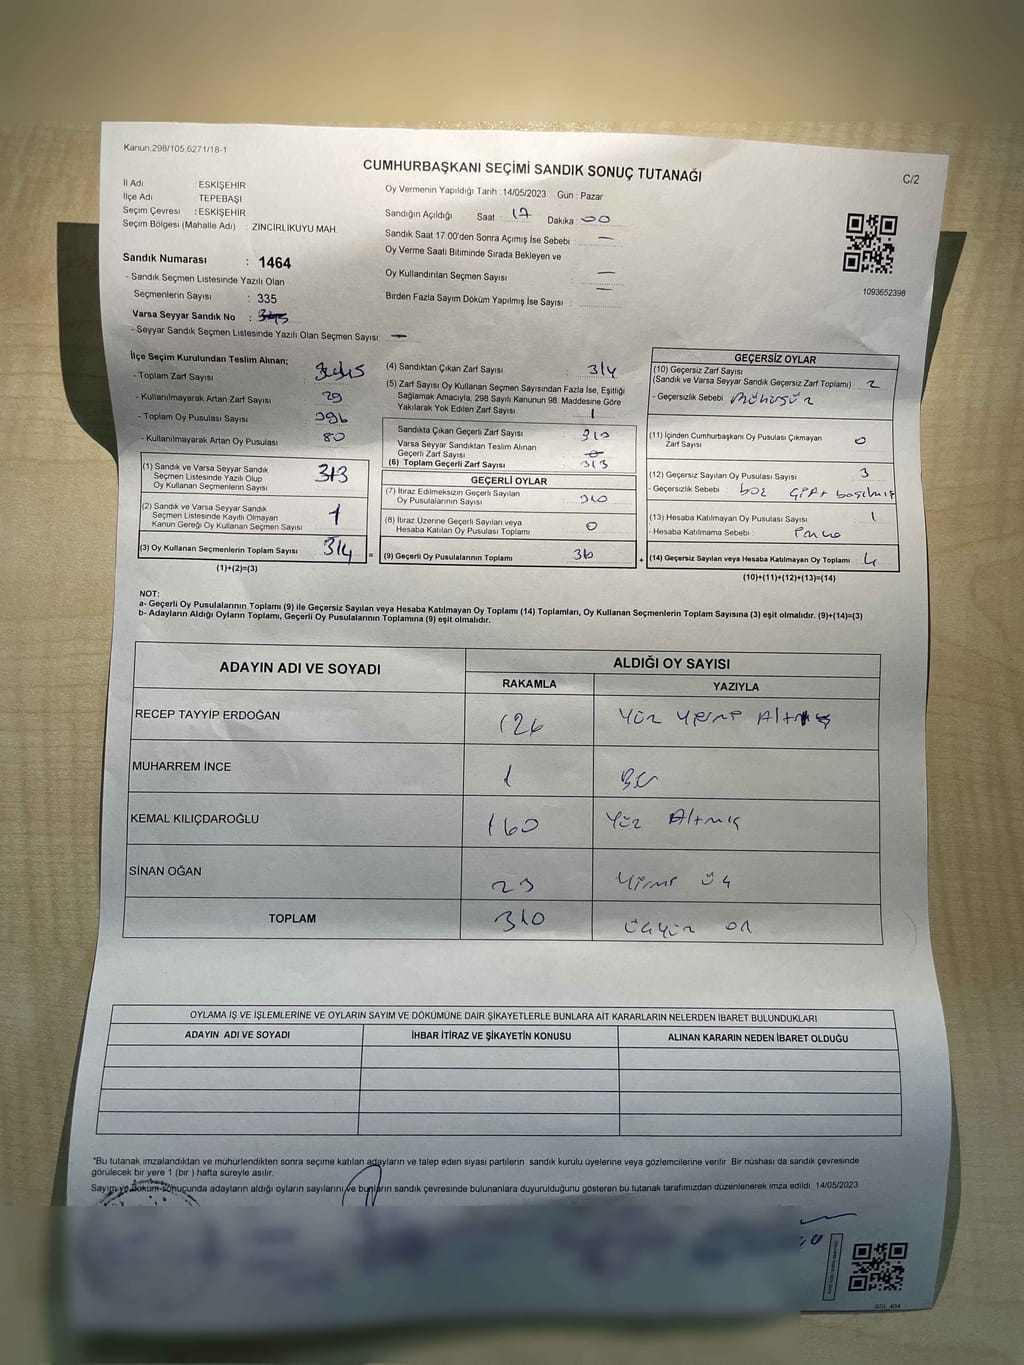 Kanun:298/105,6271/18-1
CUMHURBAŞKANI SEÇİMİ SANDIK SONUÇ TUTANAĞI
C/2
İl Adı : ESKİŞEHİR
İlçe Adı TEPEBAŞI
Seçim Çevresi : ESKİŞEHİR
Seçim Bölgesi (Mahalle Adı) : ZİNCİRLİKUYU MAH.
Oy Vermenin Yapıldığı Tarih : 14/05/2023 Gün : Pazar
Sandığın Açıldığı Saat : 17 Dakika : 00
Sandık Saat 17.00'den Sonra Açımış İse Sebebi : —
Oy Verme Saati Bitiminde Sırada Bekleyen ve
Oy Kullandırılan Seçmen Sayısı : —
Birden Fazla Sayım Döküm Yapılmış İse Sayısı : —
1093652398
Sandık Numarası : 1464
- Sandık Seçmen Listesinde Yazılı Olan
Seçmenlerin Sayısı : 335
Varsa Seyyar Sandık No :
- Seyyar Sandık Seçmen Listesinde Yazılı Olan Seçmen Sayısı: —
İlçe Seçim Kurulundan Teslim Alınan;
- Toplam Zarf Sayısı
- Kullanılmayarak Artan Zarf Sayısı 29
- Toplam Oy Pusulası Sayısı 396
- Kullanılmayarak Artan Oy Pusulası 80
(1) Sandık ve Varsa Seyyar Sandık
Seçmen Listesinde Yazılı Olup
Oy Kullanan Seçmenlerin Sayısı 313
(2) Sandık ve Varsa Seyyar Sandık
Seçmen Listesinde Kayıtlı Olmayan
Kanun Gereği Oy Kullanan Seçmen Sayısı 1
(3) Oy Kullanan Seçmenlerin Toplam Sayısı 314
(1)+(2)=(3)
=
(4) Sandıktan Çıkan Zarf Sayısı 314
(5) Zarf Sayısı Oy Kullanan Seçmen Sayısından Fazla İse, Eşitliği
Sağlamak Amacıyla, 298 Sayılı Kanunun 98. Maddesine Göre
Yakılarak Yok Edilen Zarf Sayısı 1
Sandıkta Çıkan Geçerli Zarf Sayısı 313
Varsa Seyyar Sandıktan Teslim Alınan
Geçerli Zarf Sayısı
(6) Toplam Geçerli Zarf Sayısı 313
GEÇERLİ OYLAR
(7) İtiraz Edilmeksizin Geçerli Sayılan
Oy Pusulalarının Sayısı 310
(8) İtiraz Üzerine Geçerli Sayılan veya
Hesaba Katılan Oy Pusulası Toplamı 0
(9) Geçerli Oy Pusulalarının Toplamı 310
+
GEÇERSİZ OYLAR
(10) Geçersiz Zarf Sayısı
(Sandık ve Varsa Seyyar Sandık Geçersiz Zarf Toplamı) 2
- Geçersizlik Sebebi : Mühürsüz
(11) İçinden Cumhurbaşkanı Oy Pusulası Çıkmayan
Zarf Sayısı 0
(12) Geçersiz Sayılan Oy Pusulası Sayısı 3
- Geçersizlik Sebebi : boş çift basılmış
(13) Hesaba Katılmayan Oy Pusulası Sayısı 1
- Hesaba Katılmama Sebebi :
(14) Geçersiz Sayılan veya Hesaba Katılmayan Oy Toplamı : 4
(10)+(11)+(12)+(13)=(14)
NOT:
a- Geçerli Oy Pusulalarının Toplamı (9) ile Geçersiz Sayılan veya Hesaba Katılmayan Oy Toplamı (14) Toplamları, Oy Kullanan Seçmenlerin Toplam Sayısına (3) eşit olmalıdır. (9)+(14)=(3)
b- Adayların Aldığı Oyların Toplamı, Geçerli Oy Pusulalarının Toplamına (9) eşit olmalıdır.
ADAYIN ADI VE SOYADI
ALDIĞI OY SAYISI
RAKAMLA YAZIYLA
RECEP TAYYİP ERDOĞAN 126 Yüz Yirmi Altı
MUHARREM İNCE 1 Bir
KEMAL KILIÇDAROĞLU 160 Yüz Altmış
SİNAN OĞAN 23 Yirmi üç
TOPLAM 310 üçyüz on
OYLAMA İŞ VE İŞLEMLERİNE VE OYLARIN SAYIM VE DÖKÜMÜNE DAİR ŞİKAYETLERLE BUNLARA AİT KARARLARIN NELERDEN İBARET BULUNDUKLARI
ADAYIN ADI VE SOYADI İHBAR İTİRAZ VE ŞİKAYETİN KONUSU ALINAN KARARIN NEDEN İBARET OLDUĞU
*Bu tutanak imzalandıktan ve mühürlendikten sonra seçime katılan adayların ve talep eden siyasi partilerin sandık kurulu üyelerine veya gözlemcilerine verilir. Bir nüshası da sandık çevresinde
görülecek bir yere 1 (bir ) hafta süreyle asılır.
Sayım ve döküm sonucunda adayların aldığı oyların sayılarını ve bunların sandık çevresinde bulunanlara duyurulduğunu gösteren bu tutanak tarafımızdan düzenlenerek imza edildi. 14/05/2023